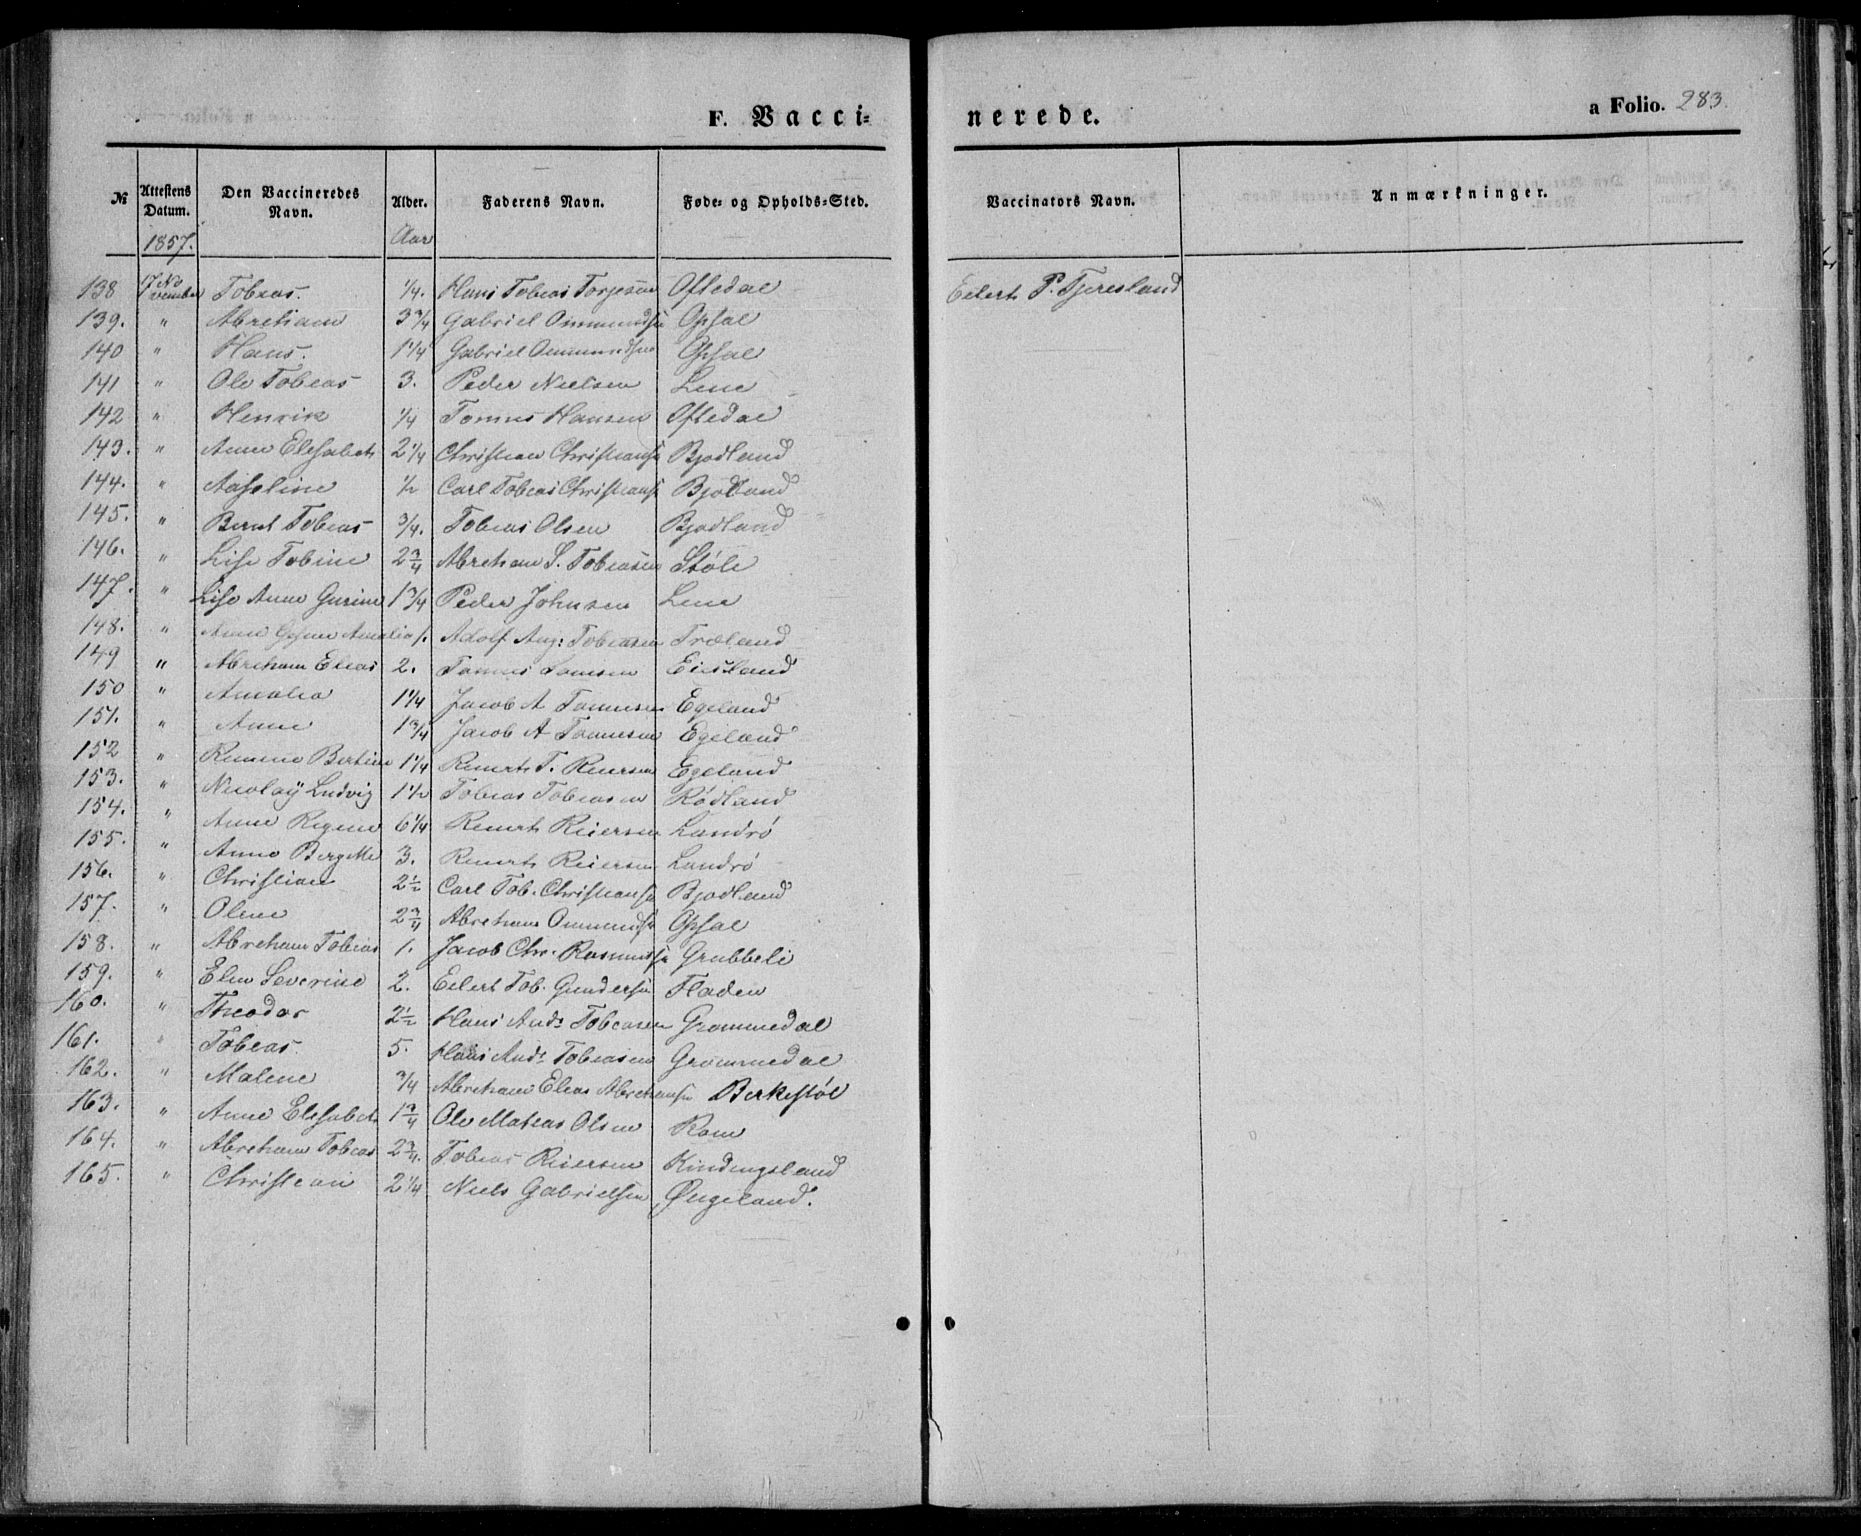 F. Vacci-
nerede.
a Folio. 283.
№ Attestens Datum. Den Vaccineredes Navn. Alder. Faderens Navn. Føde- og Opholds-Sted. Vaccinators Navn. Anmærkninger.
1857. Aar
138 17 November Tobias. 1/4. Hans Tobias Torjesen Oftedal Eilert P. Tjersland
139. " Abraham 3 3/4 Gabriel Ommundsn Opsal
140 " Hans. 1 1/4 Gabriel Ommundsen Opsal
141 " Ole Tobias 3. Peder Nielsen Lene
142 " Henrik 1/4 Tomas Hansen Oftedal
143. " Anne Elisabeth 2 1/4 Christian Christiansn Bjodland
144. " Aaseline 1/2 Carl Tobias Christiansn Bjodland
145. " Bernt Tobias 3/4. Tobias Olsen Bjodland
146. " Lise Tobine 2 3/4 Abraham S. Tobiasen Støle
147. " Lise Anne Gurine 1 3/4 Peder Johnsen Lene
148. " Anne Amalia 1. Adolf Aug: Tobiasen Træland
149 " Abraham Elias 2. Tønnes Eiesland
150 " Amalia 1 1/4 Jacob A Tønnesen Egeland
151. " Anne 1 3/4 Jacob A Tønnesen Egeland
152 " Bertine 1 1/4 Reinert T. Reiersen Egeland
153. " Nicolaÿ Ludvig 1 1/2 Tobias Tobiasen Rødland
154. " Anne Regine 6 1/4 Reinert Reiersen Landrø
155. " Anne Bergitte 3. Reinert Reiersen Landrø
156. " Christian 2 1/2 Carl Tob. Christiansn Bjodland
157. " Oline 2 3/4 Abraham Ommundsn Opsal
158. " Abraham Tobias 1. Jacob Chr. Rasmussn Grubbeli
159. " Elen Severine 2. Eilert Tob. Gundersn Fladen
160. " Theodor 2 1/2 Hans Ands Tobiasen Grommedal
161. " Tobias. 5. Hans Ands Tobiasen Grommedal
162. " Malene 3/4 Abraham Elias Abrahamsn Berkestøl
163. " Anne Elisabeth 1 3/4 Ole Matias Olsen Rom
164. " Abraham Tobias 2 3/4. Tobias Reiersen Kindingsland
165. " Christian 2 1/4 Niels Gabrielsen Øngeland.